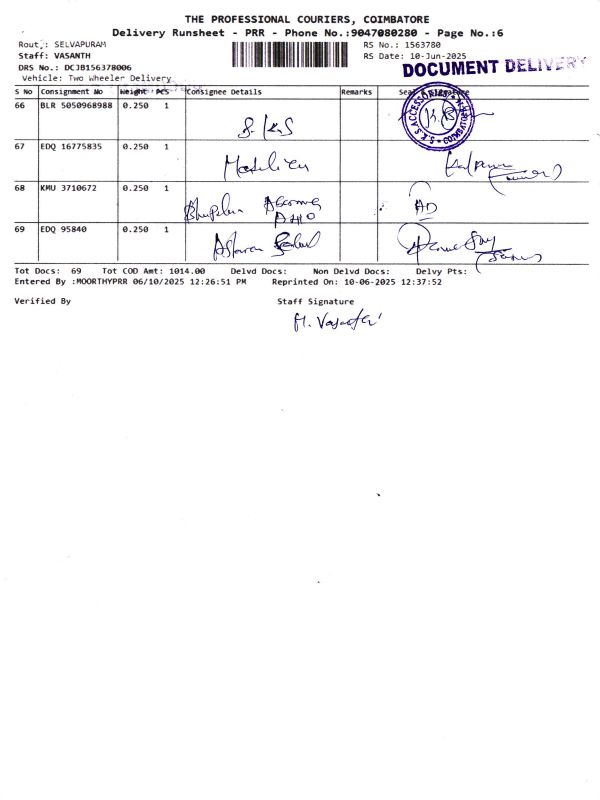 THE PROFESSIONAL COURIERS, COIMBATORE
Delivery Runsheet - PRR - Phone No.:9047080280 - Page No.:6
Rout.: SELVAPURAM
RS No.: 1563780
Staff: VASANTH
RS Date: 10-Jun-2025
DRS No.: DCJB156378006
DOCUMENT DELIVERY
Vehicle: Two Wheeler Delivery
S No Consignment No Weight PCS Consignee Details Remarks Seal & Signature
66 BLR 5050968988 0.250 1
S.K.S ACCESSORIES
67 EDQ 16775835 0.250 1
68 KMU 3710672 0.250 1
AD
69 EDQ 95840 0.250 1
Tot Docs: 69 Tot COD Amt: 1014.00 Delvd Docs: Non Delvd Docs: Delvy Pts:
Entered By :MOORTHYPRR 06/10/2025 12:26:51 PM Reprinted On: 10-06-2025 12:37:52
Verified By Staff Signature